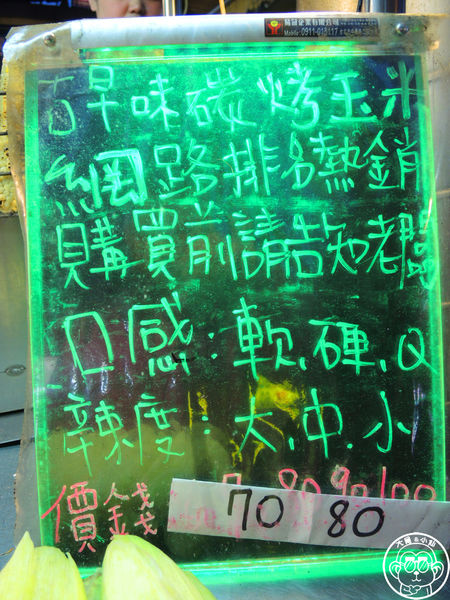 Mobile:0911-013117
古早味碳烤玉米
網路排名熱銷
購買前請告知老闆
口感:軟,硬,Q
辣度:大,中.小
價錢 70 80
80 90 100
大食&小點